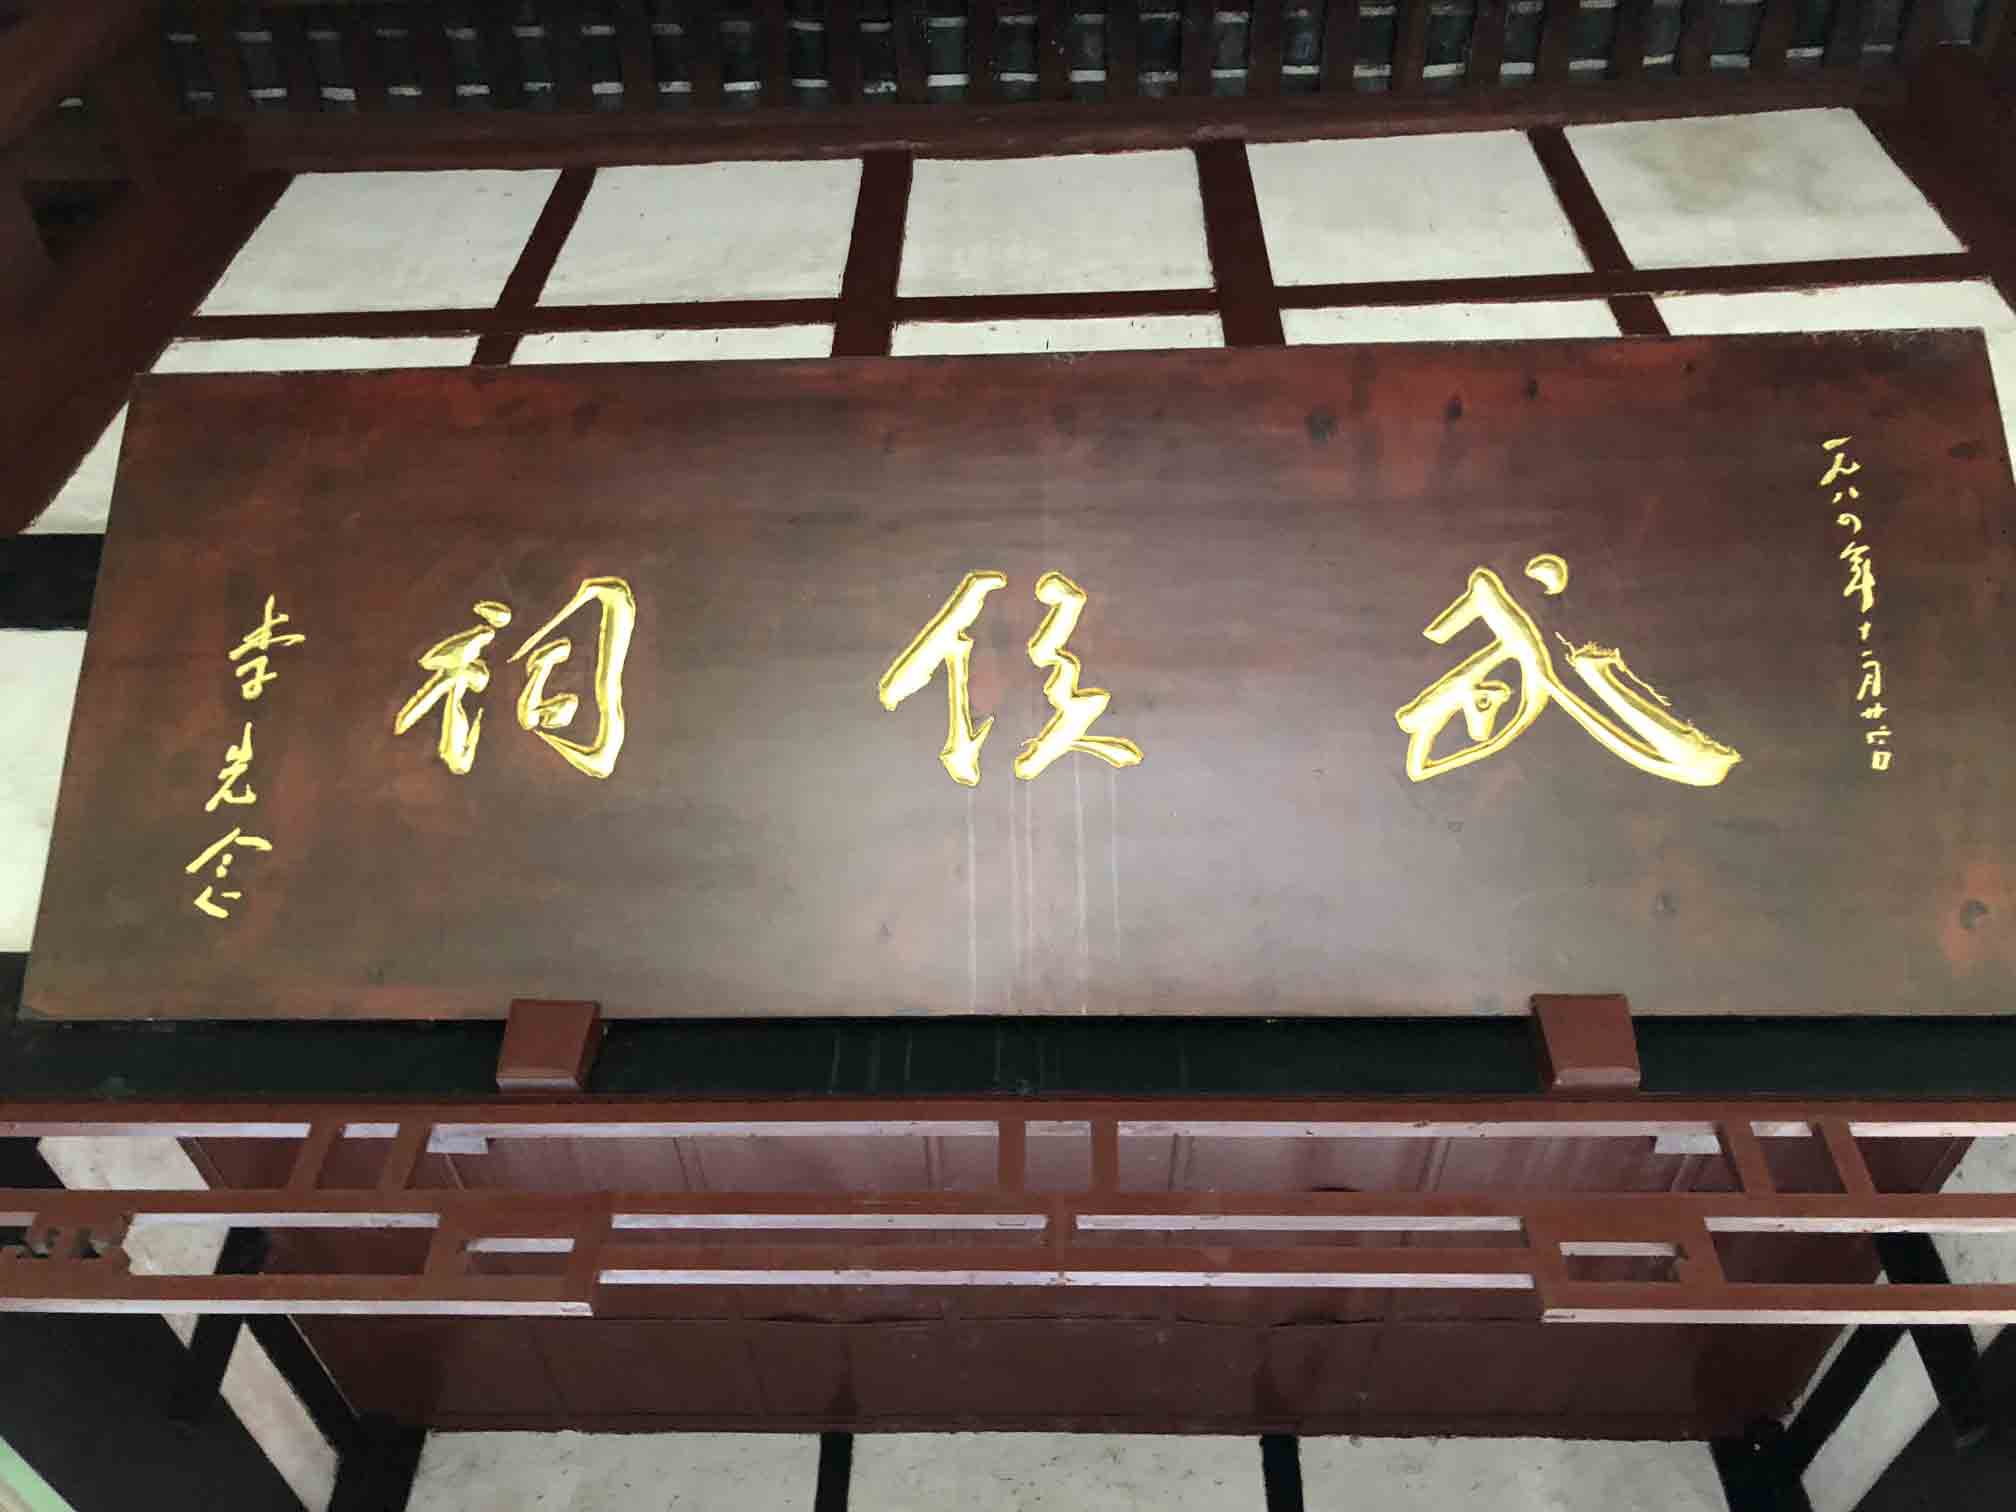 一九八四年十二月廿六日
武侯祠
李先念